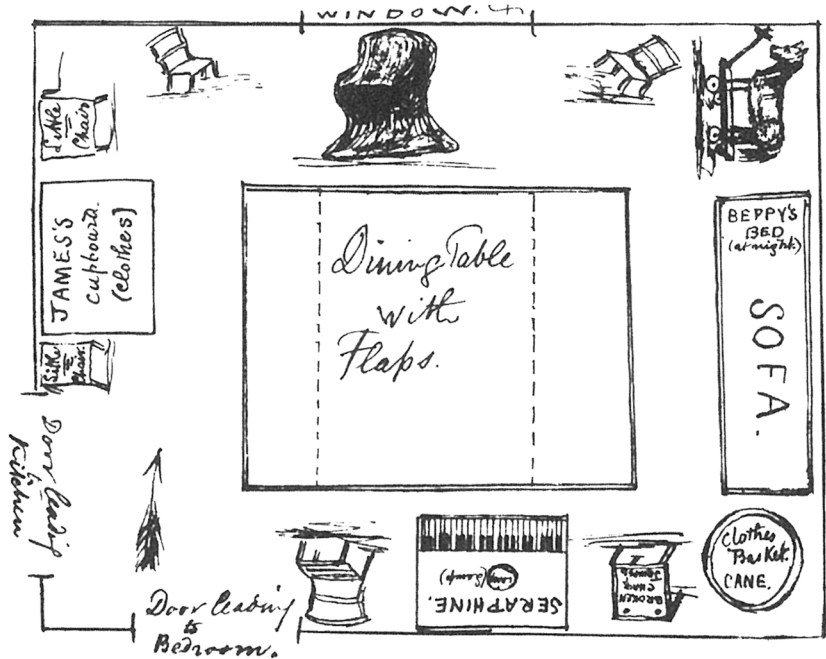 WINDOW.
Little
Chair
JAMES'S
cupboard.
(clothes)
Little
Chair
Dining Table
with
Flaps.
BEPPY'S
BED
(at night.)
SOFA.
Door leading
to
Kitchen
Door leading
to
Bedroom.
SERAPHINE.
Lamp
BROKEN
CHAIR
Clothes
Basket.
CANE.